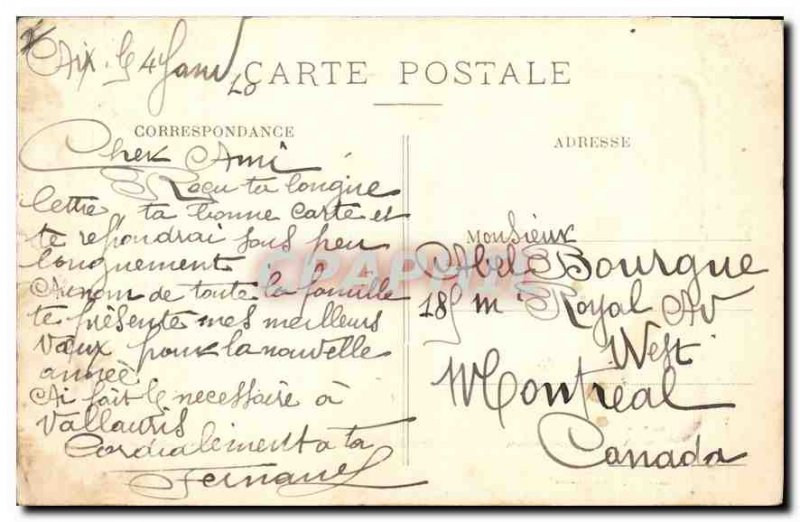 Aix. le 4 Janv
CARTE POSTALE
CORRESPONDANCE
Cher Ami
Reçu ta longue
lettre, ta bonne carte et
te repondrai sous peu
longuement
Au nom de toute la famille
te présente mes meilleurs
Vœux pour la nouvelle
année
Ai fait le necessaire à
Vallauris
Cordialement à ta
Fernand
ADRESSE
Monsieur
Abel Bourgue
Royal Av
West
Montréal
Canada